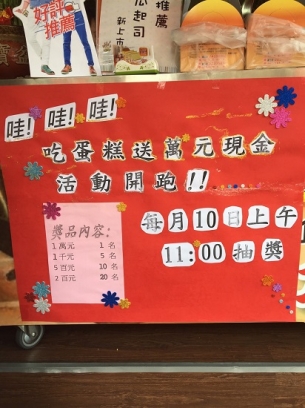 好評推薦
推薦
瓜起司
新上市
哇!哇!哇!
吃蛋糕送萬元現金
活動開跑!!
獎品內容:
1萬元 1名
1千元 5名
5百元 10名
2百元 20名
每月10日上午
11:00抽獎